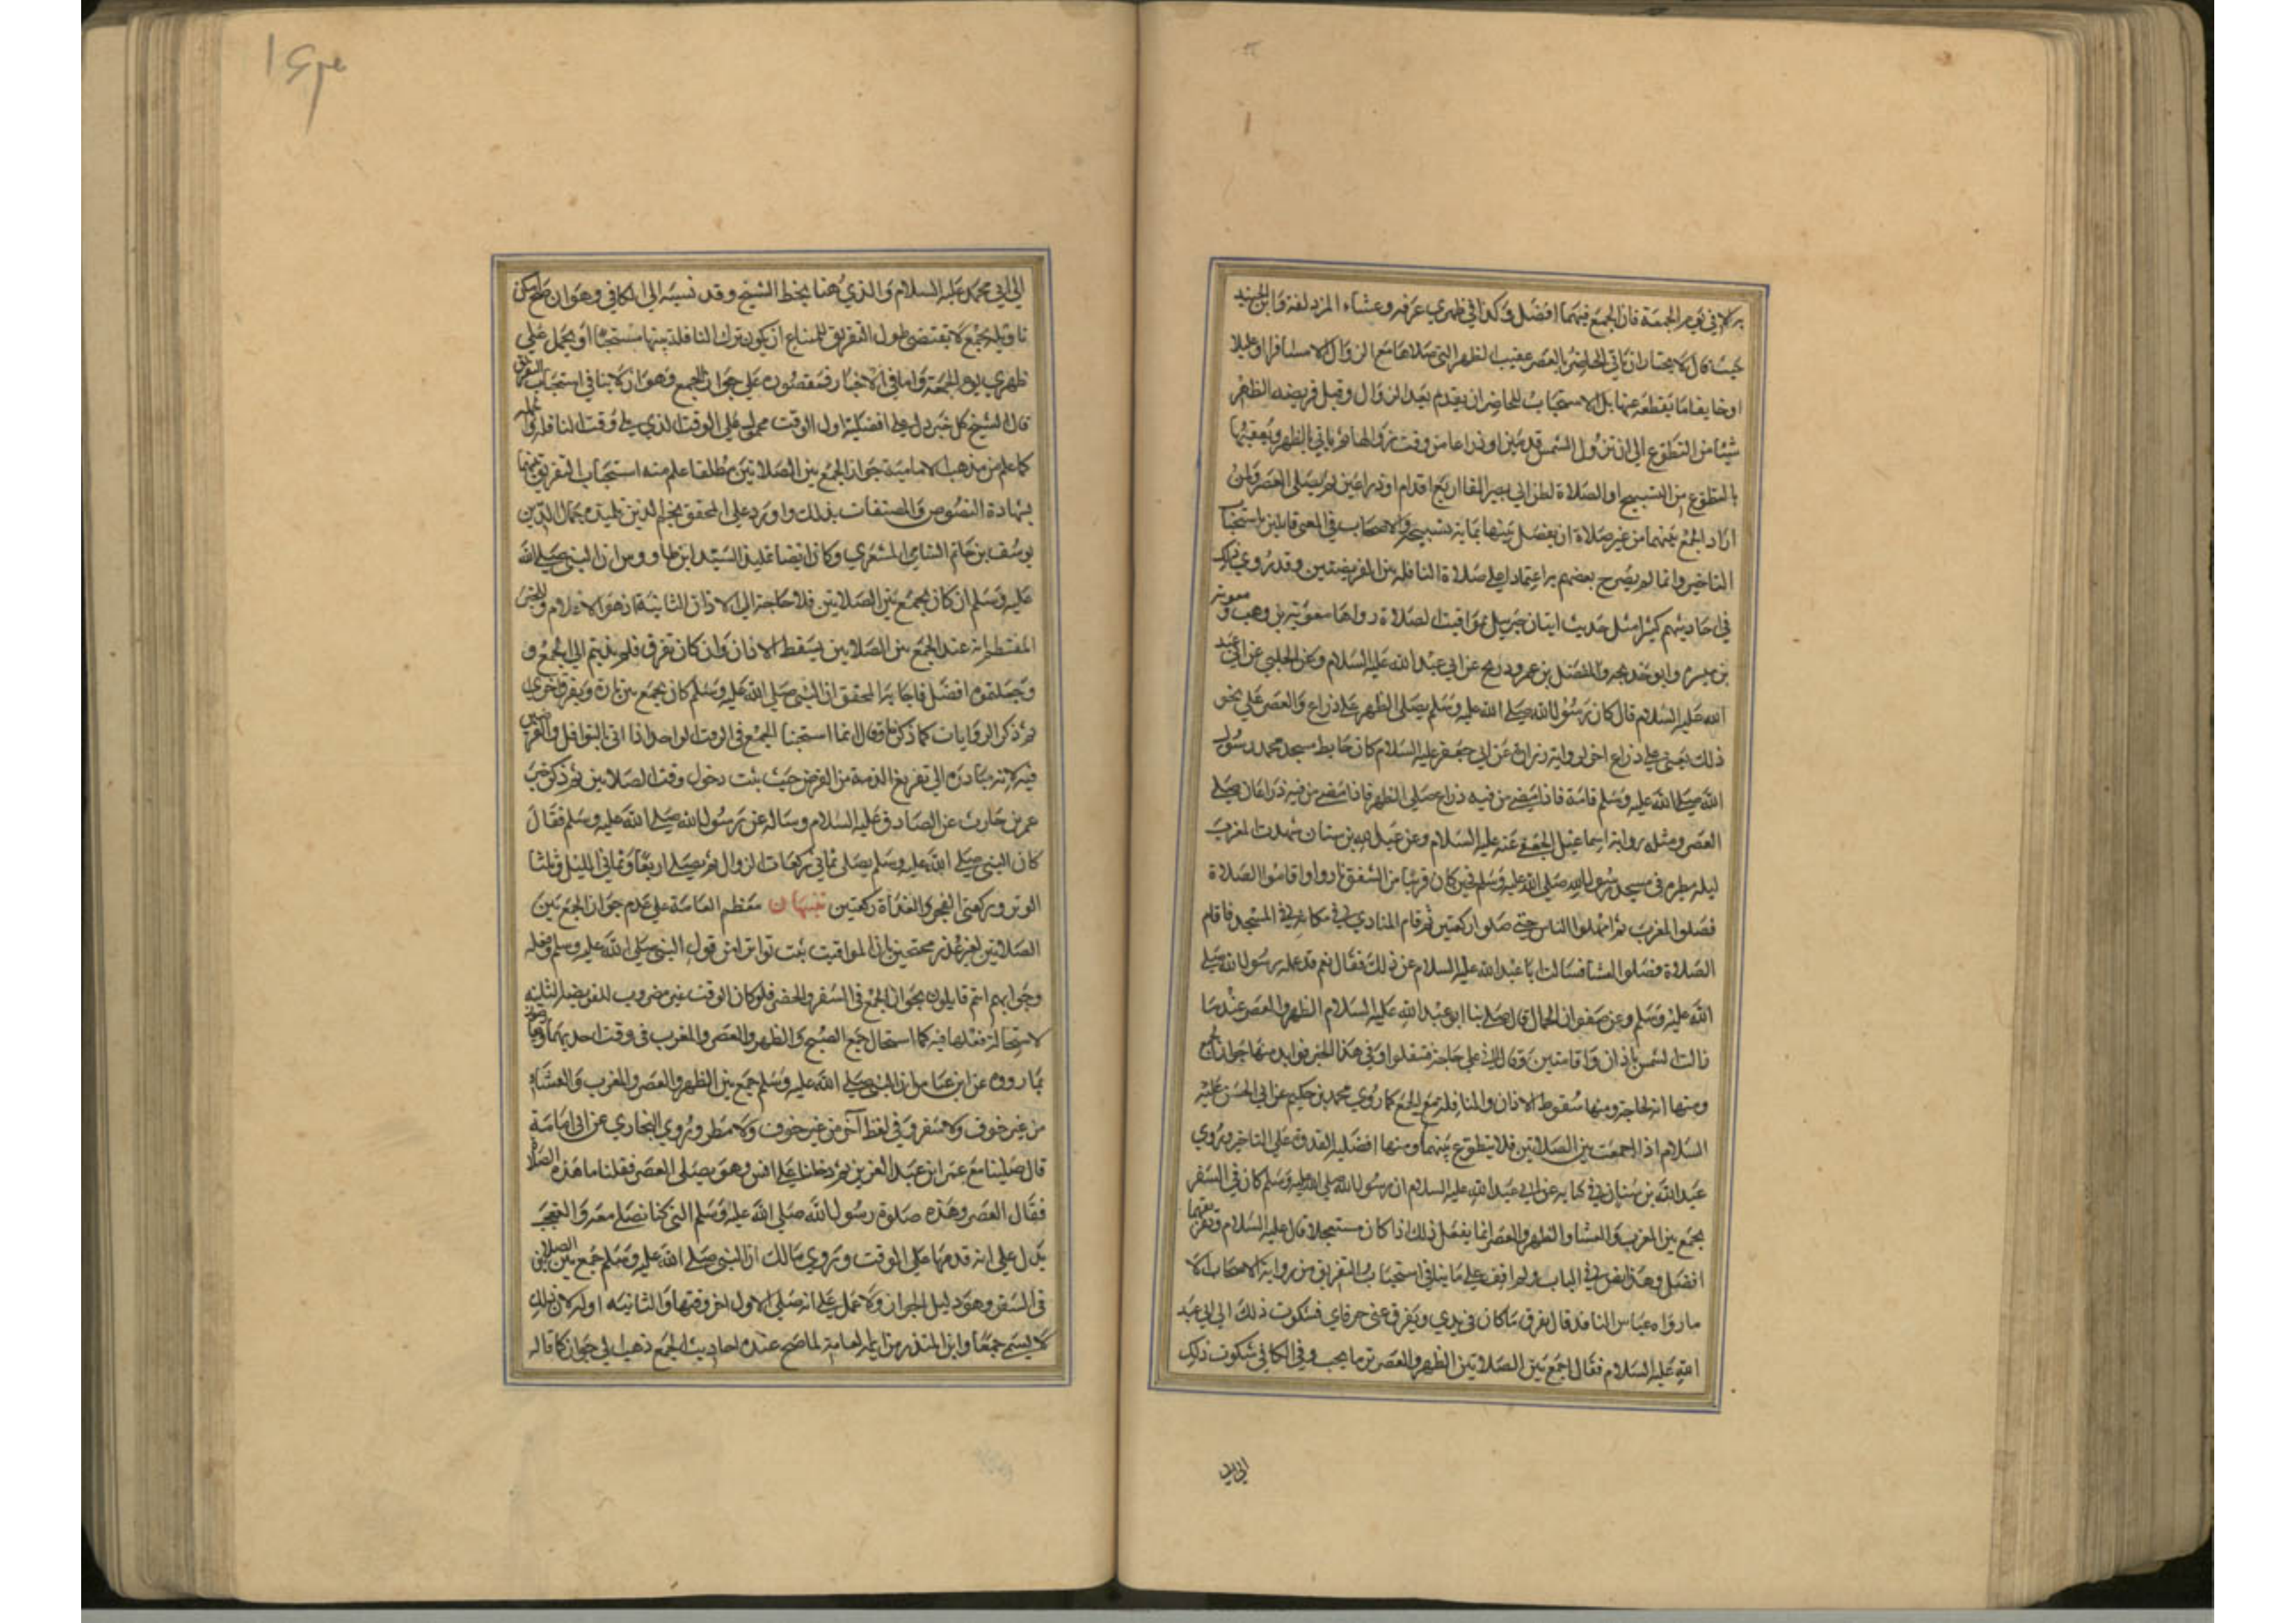 به الا في يوم الجمعة فان الجمع فيهما افضل وكذا في ظهري عرفه وعشاء المزدلفة وابن الجنيد
حيث قال لا يختار ان ياتي الحاضر بالعصر عقيب الظهر التي صلاها مع الزوال الا مسافرا او عليلا
او خايفا ما يقطعه عنها بل الاستحباب للحاضر ان يقدم بعد الزوال وقبل فريضه الظهر
شيئا من التطوع الي ان تزول الشمس قدمين او ذراعا من وقت زوالها ثم ياتي بالظهر ويعقبها
بالتطوع من التسبيح او الصلاة لطن اربع اقدام او ذراعين ثم يصلي العصر ولمن
اراد الجمع بينهما من غير صلاة ان يفصل بينها بماية تسبيح والاصحاب في المعني قايلين باستحبا
التاخير وانما لم يصرح بعضهم به اعتمادا علي صلاة النافله بين الفريضتين وقد روي ذلك
في احاديثهم كثيرا مثل حديث اتيان جبريل بمواقيت الصلاة رواها معوية بن وهب و معوية
بن ميسره وابو خديجه والمفضل بن عمر وذريح عن ابي عبد الله عليه السلام وعن الحلبي عن ابي عبد
الله عليه السلام قال كان رسول الله صلي الله عليه وسلم يصلي الظهر علي ذراع والعصر علي نحو
ذلك يعني علي ذراع اخر لرواية زرارة عن ابي جعفر عليه السلام كان حايط مسجد محمد رسول
الله صلي الله عليه وسلم قامة فاذا مضي من فيه ذراع صلي الظهر فاذا مضي من فيه ذراعان صلي
العصر ومثله رواية اسماعيل الجعفي عنه عليه السلام وعن عبد الله بن سنان شهدت المغرب
ليله مطره في مسجد رسول الله صلي الله عليه وسلم فحين كان قريبا من الشفق ثاروا واقاموا الصلاة
فصلوا المغرب ثم امهلوا الناس حتي صلوا ركعتين ثم قام المنادي في مكانه في المسجد فاقام
الصلاة فصلوا العشا فسالت ابا عبد الله عليه السلام عن ذلك فقال نعم قد عمله رسول الله صلي
الله عليه وسلم وعن صفوان الجمال قال صلي بنا ابو عبد الله عليه السلام الظهر والعصر عند ما
زالت الشمس باذان واقامتين وقال اني علي حاجة فتنفلوا وفي هذا الخبر فوايد منها جواز الجمع
ومنها انه لحاجة ومنها سقوط الاذان والنافله مع الجمع كما روي محمد بن حكيم عن ابي الحسن عليه
السلام اذا جمعت بين الصلاتين فلا تطوع بينهما ومنها افضليه القدوة علي التاخير وروي
عبد الله بن سنان في كتابه عن ابي عبد الله عليه السلام ان رسول الله صلي الله عليه وسلم كان في السفر
يجمع بين المغرب والعشا والظهر والعصر انما يفعل ذلك اذا كان مستعجلا قال عليه السلام وتفرقهما
افضل وهذا نص في الباب ولم اقف علي ما ينافي استحباب التفريق من رواية الاصحاب الا
ما رواه عباس الناقد قال تفرق ما كان في يدي وتفرق عني حرفاي فشكوت ذلك الي ابي عبد
الله عليه السلام فقال اجمع بين الصلاتين الظهر والعصر تري ما يحب وفي الكافي شكوت ذلك
الي ابي
١٤٣
الي ابي محمد عليه السلام والذي هنا بخط الشيخ وقد نسبه الي الكافي وهو ان صح امكن
تاويله بجمع لا يقتضي طول التفريق لامتناع ان يكون ترك النافلة بينهما مستحبا او يحمل علي
ظهري يوم الجمعة واما في الاخبار فمقصوره علي جواز الجمع وهو لا ينافي استحباب التفريق
قال الشيخ كل خبر دل علي افضلية اول الوقت محمول علي الوقت الذي يلي وقت النافله وبالجملة
كما علم من مذهب الامامية جواز الجمع بين الصلاتين مطلقا علم منه استحباب التفريق بينهما
بشهادة النصوص والمصنفات بذلك واورد علي المحقق نجم الدين تلميذه جمال الدين
يوسف بن حاتم الشامي المشغري وكان ايضا تلميذ السيد ابن طاووس ان النبي صلي الله
عليه وسلم ان كان يجمع بين الصلاتين فلا حاجة الي الاذان الثانية اذ هو للاعلام وللخبر
المتضمن انه عند الجمع بين الصلاتين يسقط الاذان وان كان يفرق فلم ندبتم الي الجمع و
وجعلتموه افضل فاجابه المحقق ان النبي صلي الله عليه وسلم كان يجمع بين تارة ويفرق اخري
ثم ذكر الروايات كما ذكرنا وقال انما استحبنا الجمع في الوقت الواحد اذا اتي بالنوافل والفرضين
فيه لانه مبادره الي تفريغ الذمة من الفرض حيث ثبت دخول وقت الصلاتين ثم ذكر خبر
عمر بن حارث عن الصادق عليه السلام وساله عن رسول الله صلي الله عليه وسلم فقال
كان النبي صلي الله عليه وسلم يصلي ثماني ركعات الزوال ثم يصلي اربعا وثماني الليل وثلثا
الوتر وركعتي الفجر والغداة ركعتين تنبيهان معظم العامة علي عدم جواز الجمع بين
الصلاتين لغير عذر محتجين بان المواقيت ثبت تواترا من قول النبي صلي الله عليه وسلم وفعله
وجوابهم انتم قايلون بجواز الجمع في السفر والحضر فلو كان الوقت غير مضروب للفريضة الثانيه
لاستحالة فعلها فيه كما استحال جمع الصبح والظهر والعصر والمغرب في وقت احديهما
بما رووه عن ابن عباس ان النبي صلي الله عليه وسلم جمع بين الظهر والعصر والمغرب والعشاء
من غير خوف ولا سفر وفي لفظ آخر من غير خوف ولا مطر وروي البخاري عن ابي امامة
قال صلينا مع عمر ابن عبد العزيز ثم دخلنا علي انس وهو يصلي العصر فقلنا ما هذه الصلاة
فقال العصر وهذه صلوة رسول الله صلي الله عليه وسلم التي كنا نصلي معه
يدل علي انه قدمها علي الوقت وروي مالك ان النبي صلي الله عليه وسلم جمع بين الصلاتين
في السفر وهو دليل الجواز ولا يحمل علي انه صلي الاول اخر وقتها والثانيه اوله لان ذلك
لا يسمي جمعا وابن المنذر من ايمه العامة لما صح عنده احاديث الجمع ذهب الي جوازه كما قاله